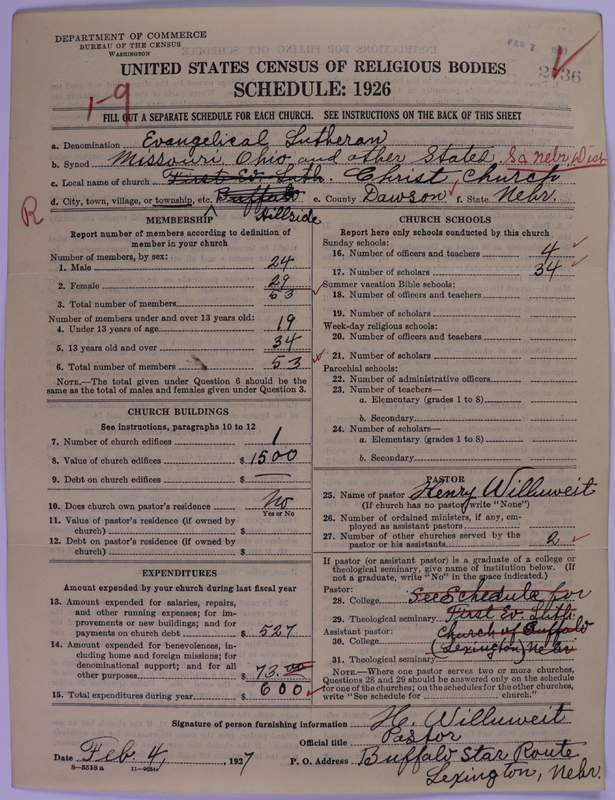 DEPARTMENT OF COMMERCE
BUREAU OF THE CENSUS
WASHINGTON
FEB 7 1927
2736
UNITED STATES CENSUS OF RELIGIOUS BODIES
SCHEDULE: 1926
1-9
FILL OUT A SEPARATE SCHEDULE FOR EACH CHURCH. SEE INSTRUCTIONS ON THE BACK OF THIS SHEET
a. Denomination Evangelical Lutheran
b. Synod Missouri, Ohio, and other States, So Nebr. Dist
c. Local name of church First Ev. Luth. Christ Church
d. City, town, village, or township, etc. Buffalo e. County Dawson f. State Nebr.
Hillside
R
MEMBERSHIP
Report number of members according to definition of member in your church
Number of members, by sex:
1. Male 24
2. Female 29
3. Total number of members 53
Number of members under and over 13 years old:
4. Under 13 years of age 19
5. 13 years old and over 34
6. Total number of members 53
NOTE.—The total given under Question 6 should be the same as the total of males and females given under Question 3.
CHURCH BUILDINGS
See instructions, paragraphs 10 to 12
7. Number of church edifices 1
8. Value of church edifices $1500
9. Debt on church edifices $ —
10. Does church own pastor's residence No
Yes or No
11. Value of pastor's residence (if owned by church) $
12. Debt on pastor's residence (if owned by church) $
EXPENDITURES
Amount expended by your church during last fiscal year
13. Amount expended for salaries, repairs, and other running expenses; for improvements or new buildings; and for payments on church debt $527
14. Amount expended for benevolences, including home and foreign missions; for denominational support; and for all other purposes $73.00
15. Total expenditures during year $600
CHURCH SCHOOLS
Report here only schools conducted by this church
Sunday schools:
16. Number of officers and teachers 4
17. Number of scholars 34
Summer vacation Bible schools:
18. Number of officers and teachers
19. Number of scholars
Week-day religious schools:
20. Number of officers and teachers
21. Number of scholars
Parochial schools:
22. Number of administrative officers
23. Number of teachers—
a. Elementary (grades 1 to 8)
b. Secondary
24. Number of scholars—
a. Elementary (grades 1 to 8)
b. Secondary
PASTOR
25. Name of pastor Henry Willuweit
(If church has no pastor write "None")
26. Number of ordained ministers, if any, employed as assistant pastors
27. Number of other churches served by the pastor or his assistants 2
If pastor (or assistant pastor) is a graduate of a college or theological seminary, give name of institution below. (If not a graduate, write "No" in the space indicated.)
Pastor:
28. College See Schedule for
29. Theological seminary First Ev. Luth.
Assistant pastor: Church of Buffalo
30. College (Lexington) Nebr.
31. Theological seminary
NOTE.—Where one pastor serves two or more churches, Questions 28 and 29 should be answered only on the schedule for one of the churches; on the schedules for the other churches, write "See schedule for church."
Signature of person furnishing information H. Willuweit
Official title Pastor
Date Feb. 4, 1927 P. O. Address Buffalo Star Route
Lexington, Nebr.
8—5518 a